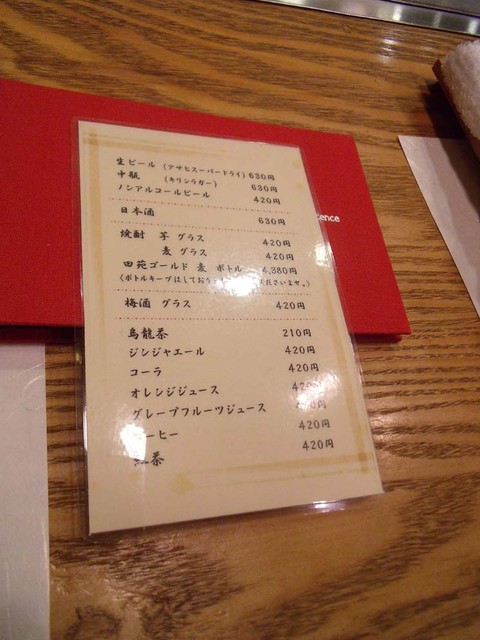 生ビール (アサヒスーパードライ) 630円
中瓶 (キリンラガー) 630円
ノンアルコールビール 420円
日本酒 630円
焼酎 芋 グラス 420円
麦 グラス 420円
田苑ゴールド 麦 ボトル 4,380円
(ボトルキープはしておりう くださいませ。)
梅酒 グラス 420円
烏龍茶 210円
ジンジャエール 420円
コーラ 420円
オレンジジュース 420円
グレープフルーツジュース
ーヒー 420円
紅茶 420円
ence